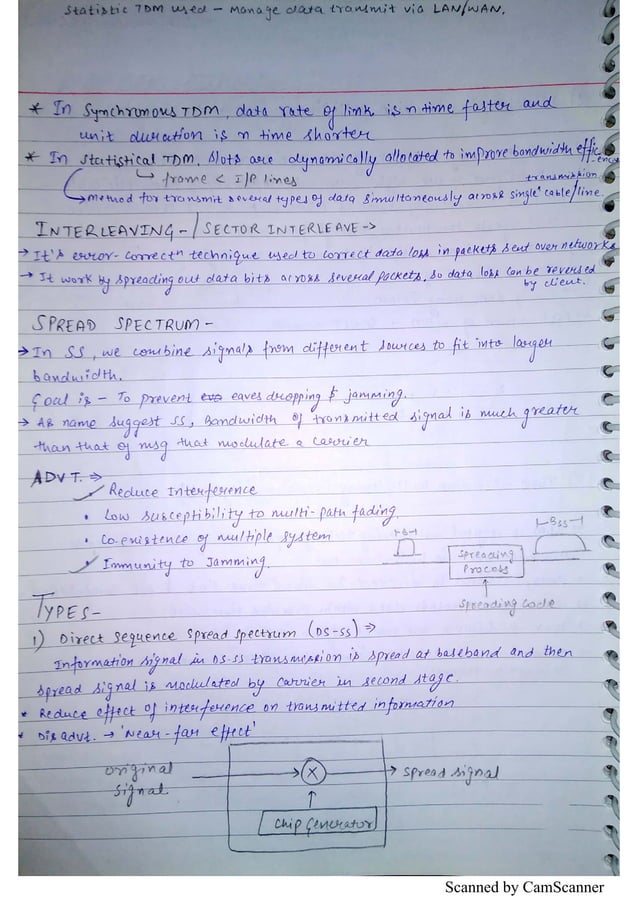 Statistic TDM used - Manage data transmit via LAN/WAN.
* In Synchronous TDM, data rate of link is n time faster and
unit duration is n time shorter
* In Statistical TDM, slots are dynamically allocated to improve bandwidth efficiency
↳ frame < I/P lines
→ Method for transmit several types of data simultaneously across single transmission cable/line
INTERLEAVING-/SECTOR INTERLEAVE->
→ It's error-correctn technique used to correct data loss in packets sent over networks
→ It work by spreading out data bits across several packets, so data loss can be reversed
by client.
SPREAD SPECTRUM-
→ In SS, we combine signals from different sources to fit into larger
bandwidth.
Goal is - To prevent eaves dropping & jamming.
→ As name suggest SS, Bandwidth of transmitted signal is much greater
than that of msg that modulate a carrier
ADVT. ⇒
Reduce Interference
• Low susceptibility to multi-path fading
• Co-existence of multiple system
Immunity to Jamming.
|-B-|
|-Bss-|
Spreading
Process
Spreading Code
TYPES-
1) Direct Sequence Spread Spectrum (DS-SS) ⇒
Information signal in DS-SS transmission is spread at baseband and then
spread signal is modulated by carrier in second stage.
* Reduce effect of interference on transmitted information
* Disadvt. → 'Near-far effect'
original
signal.
X
spread signal
Chip Generator
Scanned by CamScanner